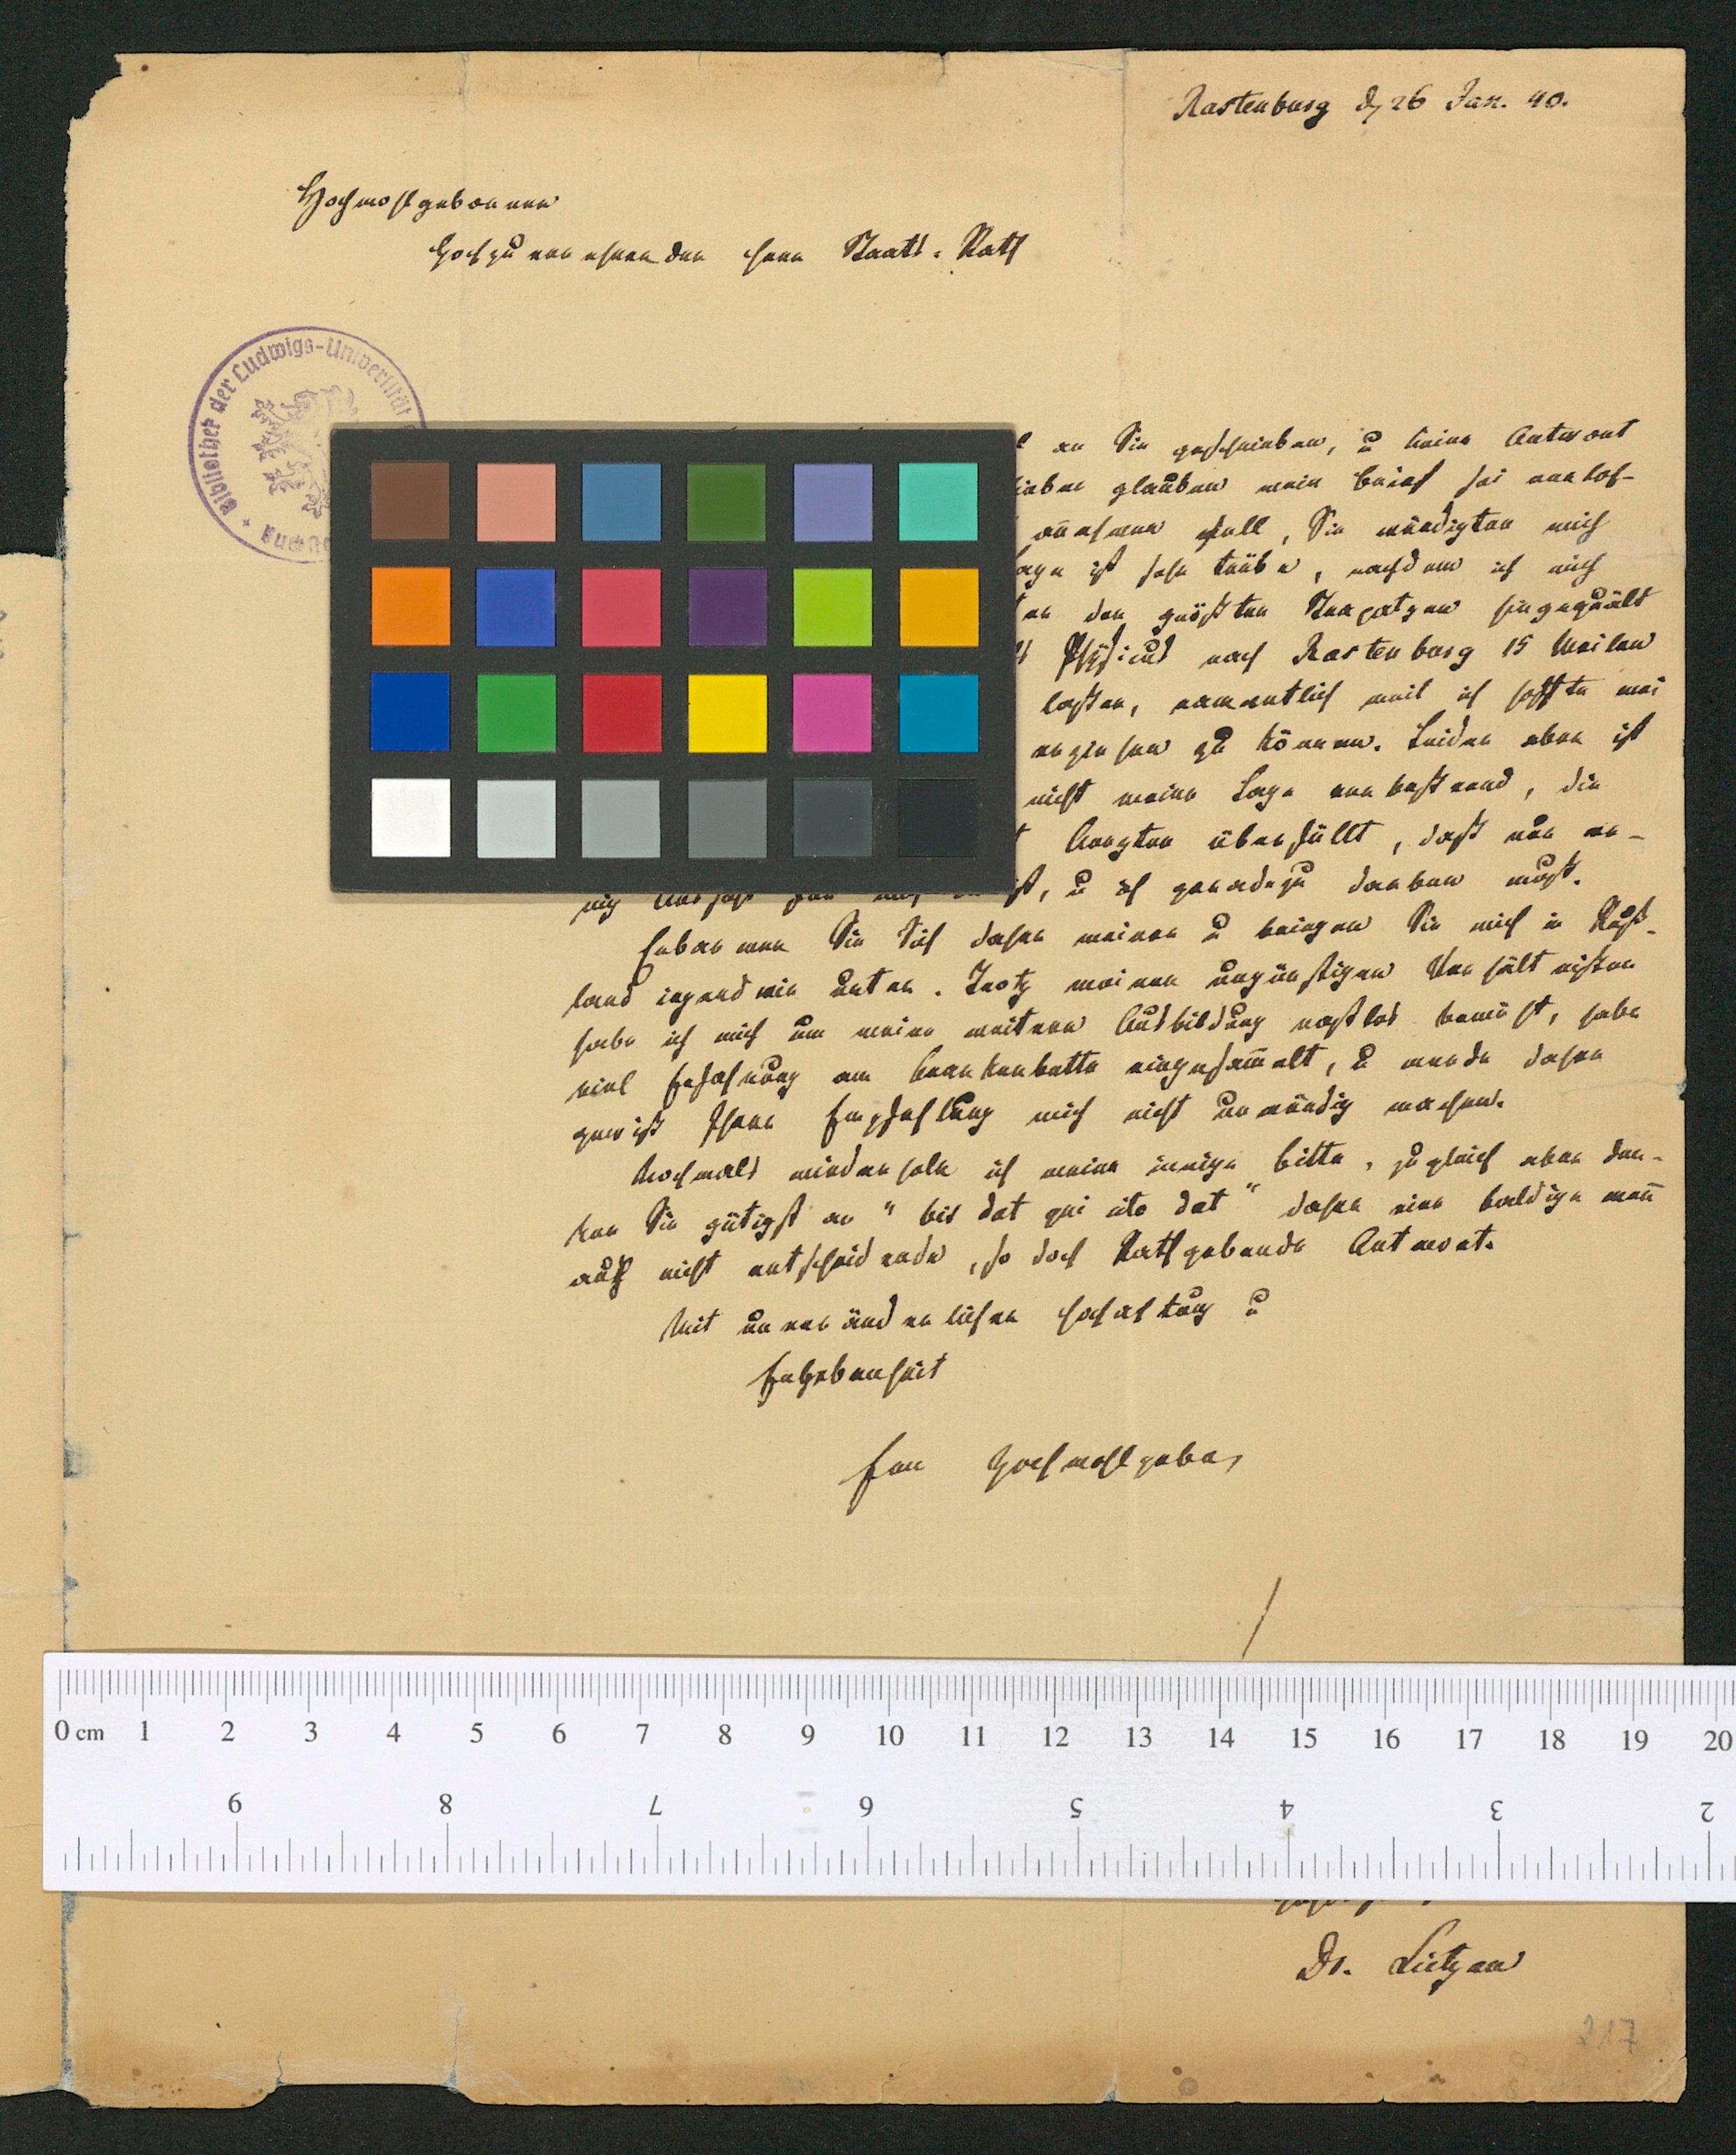 Rastenburg d 26 Jan. 40.
Hochwohlgeborner
Hochzuverehrender Herr Staats-Rath
Bibliothek der Ludwigs-Universität
an Sie geschrieben, u keine Antwort
lieber glauben mein Brief sei verloh-
annehmen soll, Sie würdigten mich
ist sehr trübe, nachdem ich mich
den größten Strapatzen hingequält
Physicus nach Rastenburg 15 Meilen
laßen, namentlich weil ich hoffte mei
erziehen zu können. Leider aber ist
nicht meine Lage verbeßernd, die
Aerzten überfüllt, daß nur we-
nig ist, u ich geradezu darben muß.
Erbarmen Sie Sich daher meiner u bringen Sie mich in Ruß-
land irgend wie unter. Trotz meiner ungünstigen Verhältnißen
habe ich mich um meine weitere Ausbildung rastlos bemüht, habe
viel Erfahrung am Krankenbette eingesam̄elt, u werde daher
gewiß Ihrer Empfehlung mich nicht unwürdig machen.
Nochmals wiederhole ich meine innige Bitte, zugleich aber den-
ken Sie gütigst an "bis dat qui cito dat" daher eine baldige wen̄
auch nicht entscheidende, so doch Rathgebende Antwort.
Mit unveränderlicher Hochachtung u
Ergebenheit
Euer Hochwohlgebor
0 cm 1 2 3 4 5 6 7 8 9 10 11 12 13 14 15 16 17 18 19 20
9 8 7 6 5 4 3 2
Dr. Lietzau
217